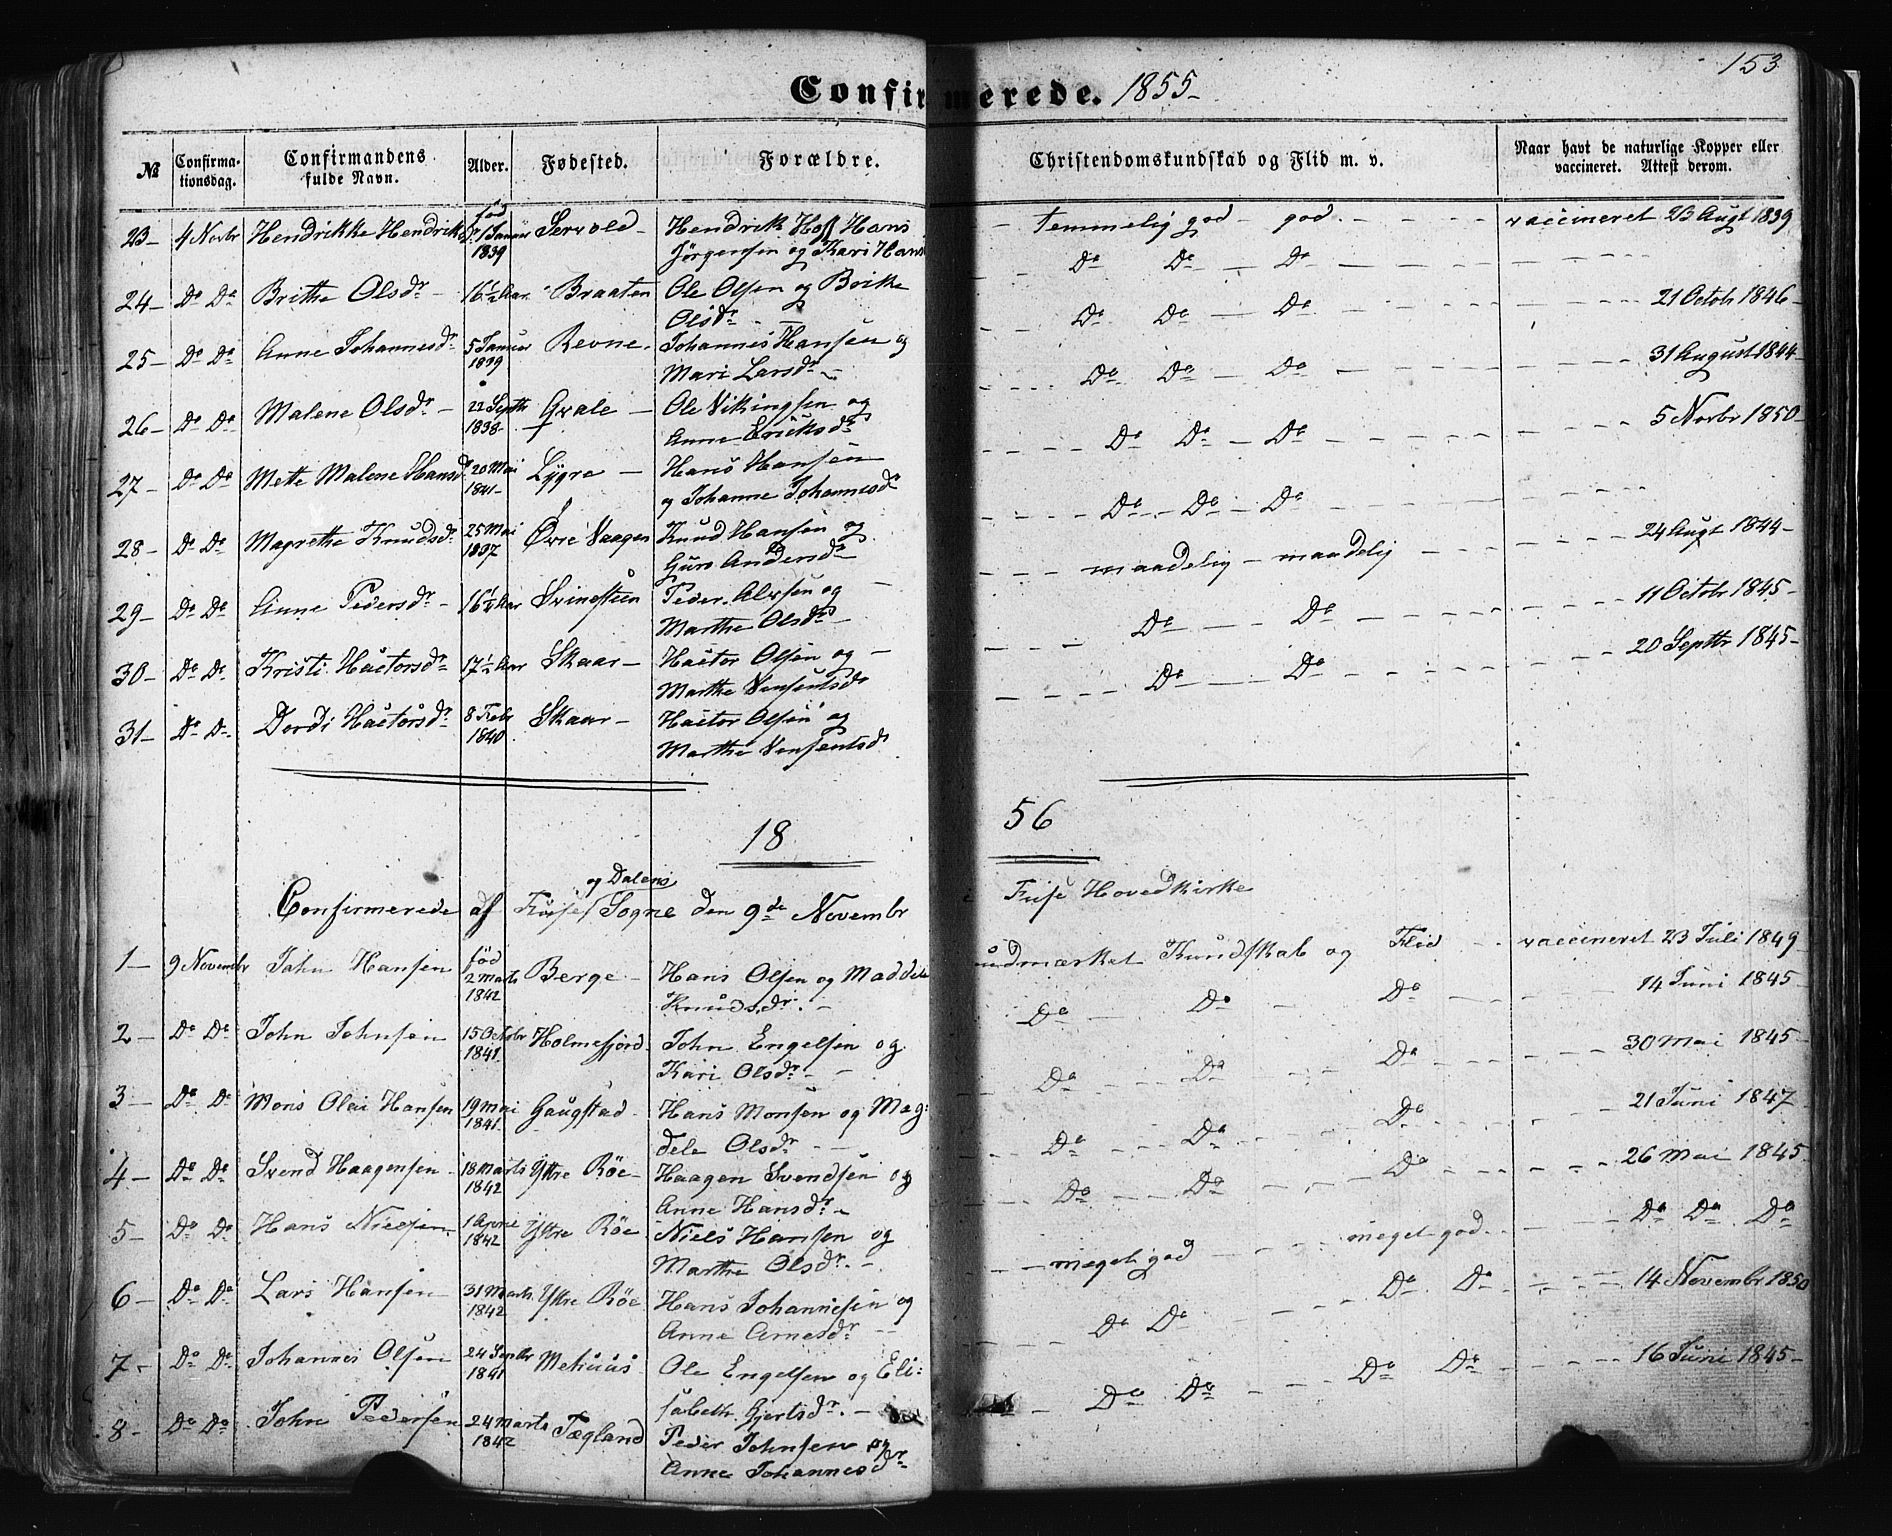 153
Confirmerede. 1855-
№ Confirmationsdag. Confirmandens fulde Navn. Alder. Fødested. Forældre. Christendomskundskab og Flid m. v. Naar havt de naturlige Kopper eller vaccineret. Attest derom.
23- 4 Novbr Hendrikke Hendriksdr født 1 Januar 1839 Hendrik Hans Jørgensen og Kari Hans temmelig god - god. vaccineret 23 Augt 1839
24- Do Do Brithe Olsdr- 16½ Aar Braaten Ole Olsen og Olsdr- Do Do - Do
25- Do Do Anne Johannesdr 5 Januar 1839 Revne. Johannes Hansen og Mari Larsdr- Do Do - Do 21 Octobr 1846-
26- Do Do Malene Olsdr- 22 Septbr 1838- Qvale- Ole Vikingsen og Anne Ericksdr Do Do - Do 31 August 1844-
27- Do Do Mette Malene Hansdr 20 Mai 1841- Lygre- Hans Hansen og Johanne Johannesdr Do Do - Do 5 Novbr 1850-
28- Do Do Magrethe Knudsdr 25 Mai 1837 Øvre Vaagen Knud Hansen og Guro Andersdr Do - Do - Do
29- Do Do Anne Pedersdr- 16¼ Aar Svinesteen Peder og Marthe Olsdr- maadelig - maadelig 24 Augt 1844-
30- Do Do Kristi Hactorsdr 17½ Aar Skaar- Hactor Olsen og Marthe Vensentsdr Do - Do 11 Octobr 1845-
31- Do Do Dordi Hactorsdr 8 Febr 1840 Skaar- Hactor Olsen og Marthe Vensentsdr Do - Do 20 Septbr 1845-
18 56
Confirmerede af Fuse og Dalens Sogne den 9de Novembr i Fuse Hovedkirke
1- 9 Novembr John Hansen født 2 Marts 1842 Berge- Hans Olsen og Maddele Knudsdr- udmærket Kundskab og Flid vaccineret 23 Juli 1849-
2- Do Do John Johnsen 15 Octobr 1841. Holmefjord John Engelsen og Kari Olsdr- Do Do Do 14 Juni 1845
3- Do Do Mons Olai Hansen 19 Mai 1841. Gaugstad- Hans Monsen og Magdele Olsdr- Do Do Do 30 Mai 1845
4- Do Do Svend Haagensen- 18 Marts 1842 Yttre Röe- Haagen Svendsen og Anne Hansdr- Do Do Do 21 Juni 1847
5- Do Do Hans Nielsen 1 Apr 1842 Yttre Röe Niels Hansen og Marthe Olsdr- Do Do Do 26 Mai 1845
6- Do Do Lars Hansen- 31 Marts 1842 Yttre Röe Hans Johannesen og Anne Arnesdr- meget god meget god Do Do Do
7- Do Do Johannes Olsen 24 Septbr 1841 Ole Engelsen og Elisabeth Gjertsdr- Do Do Do Do 14 Novembr 1850
8- Do Do John Pedersen 24 Marts 1842 Tægland Peder Johnsen og Anne Johannesdr Do Do Do Do 16 Juni 1845-